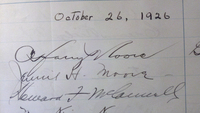 October 26, 1926
A Harry Moore
Daniel H. Moore
Howard F McConnell